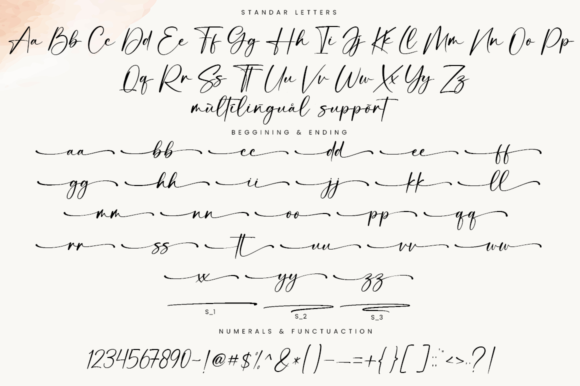 STANDAR LETTERS
Aa Bb Cc Dd Ee Ff Gg Hh Ii Jj Kk Ll Mm Nn Oo Pp
Qq Rr Ss Tt Uu Vv Ww Xx Yy Zz
multilingual support
BEGGINING & ENDING
aa bb cc dd ee ff
gg hh ii jj kk ll
mm nn oo pp qq
rr ss tt uu vv ww
xx yy zz
S_1 S_2 S_3
NUMERALS & FUNCTUACTION
1234567890-!@#$%^&*()-—=+{}[]:;"<>.?|